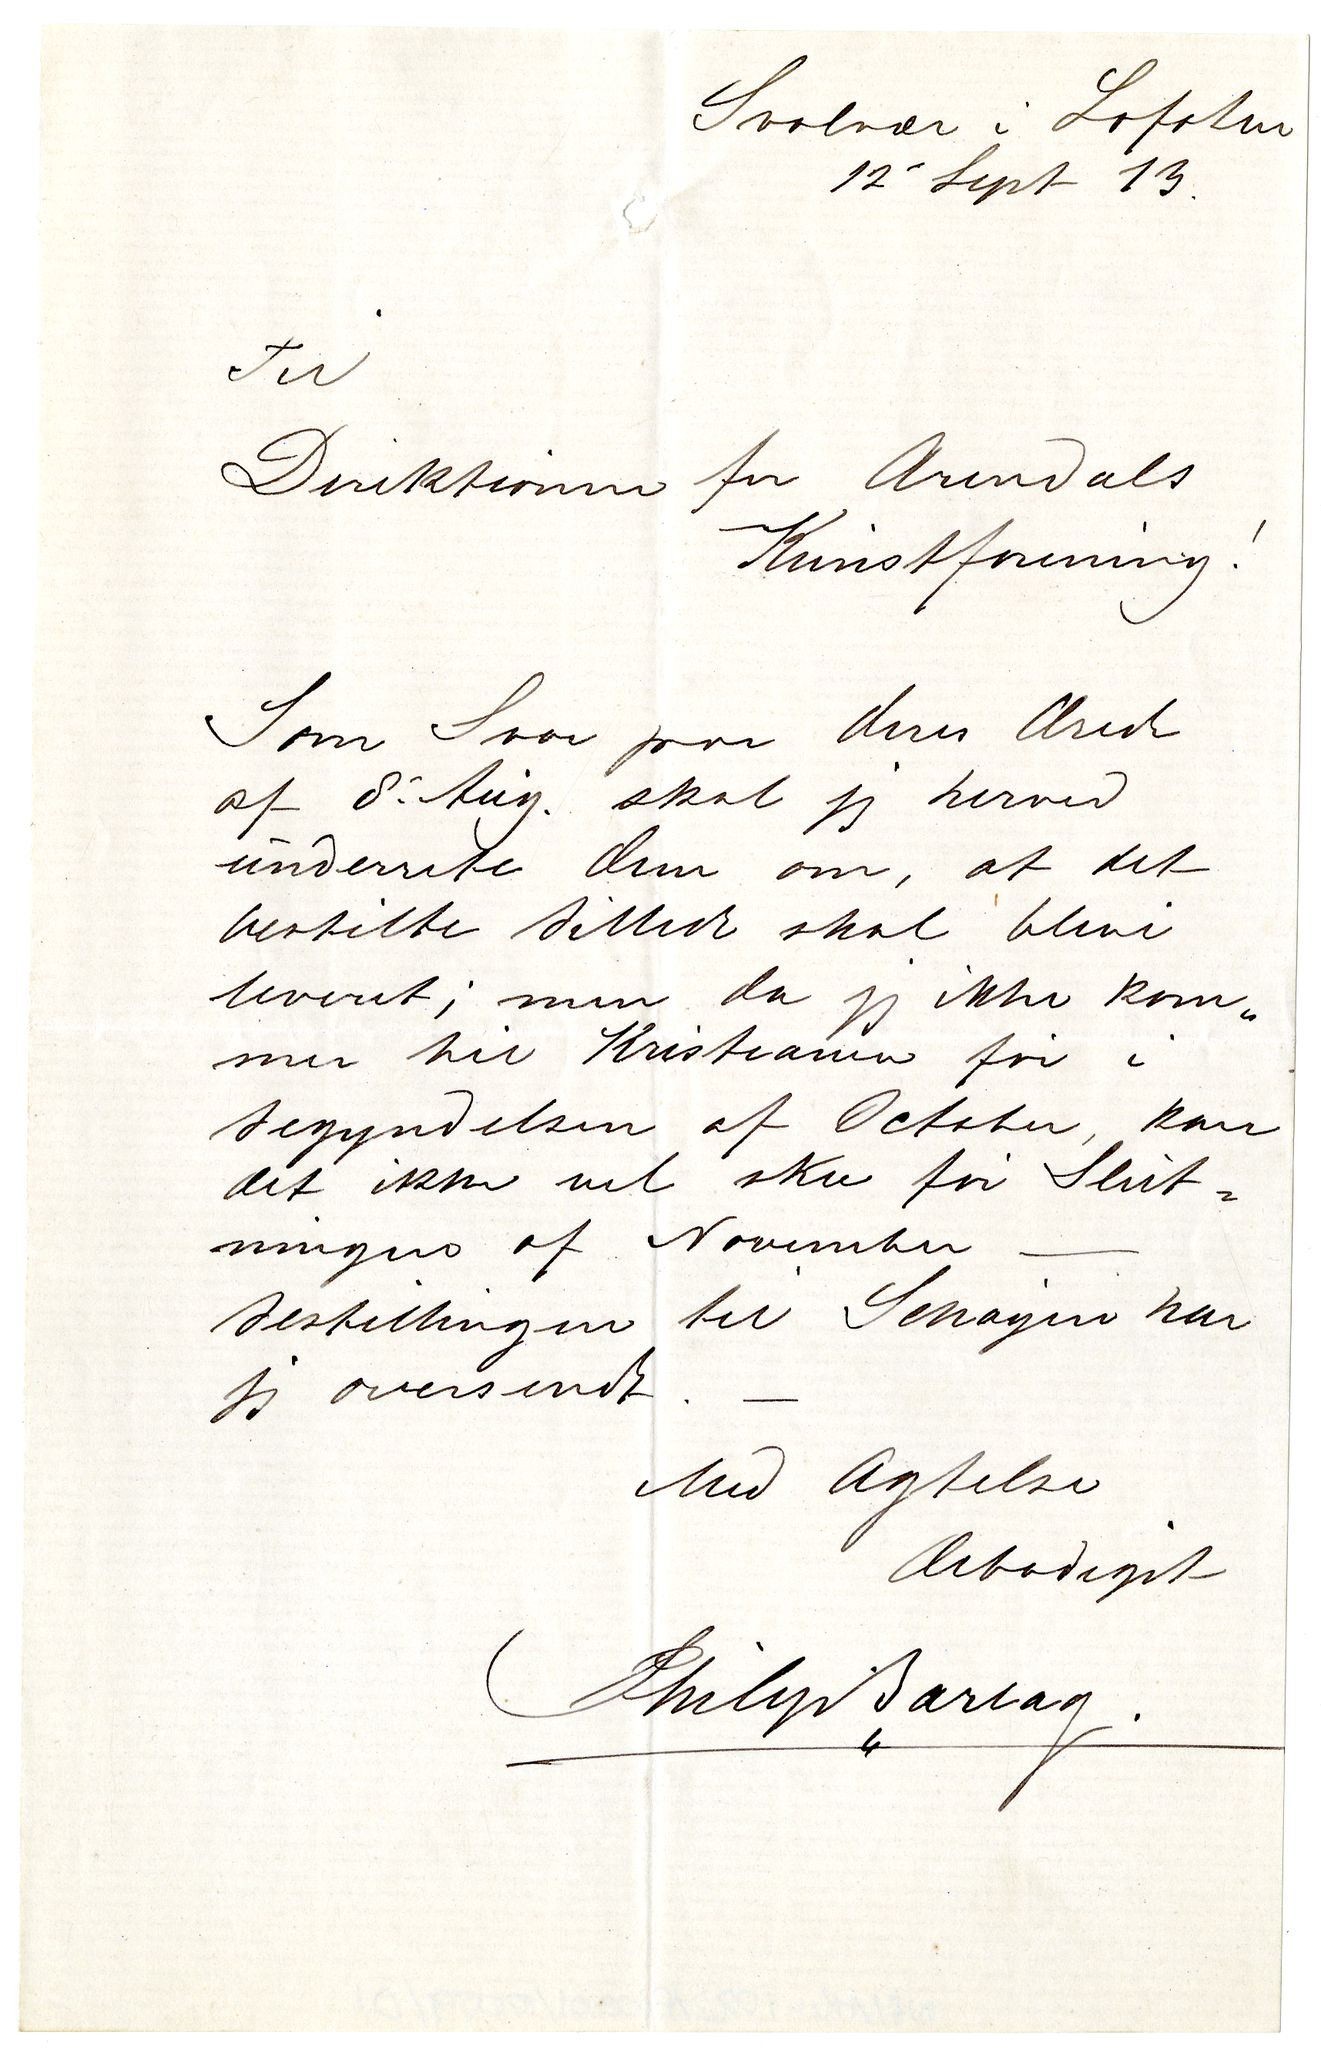 Svolvær i Lofoten
12' Sept 13.
Til
Direktionen for Arendals
Kunstforening!
Som Svar paa deres Ærede
af 8. Aug. skal jeg herved
underrete dem om, at det
bestilte Billede skal blive
leveret; men da jeg ikke kom„
mer til Kristiania før i
Begyndelsen af October, kan
det ikke vel ske før Slut-
ningen af November —
Bestillingen til har
jeg oversendt. —
Med Agtelse
Ærbødigst
Philip Barlag.